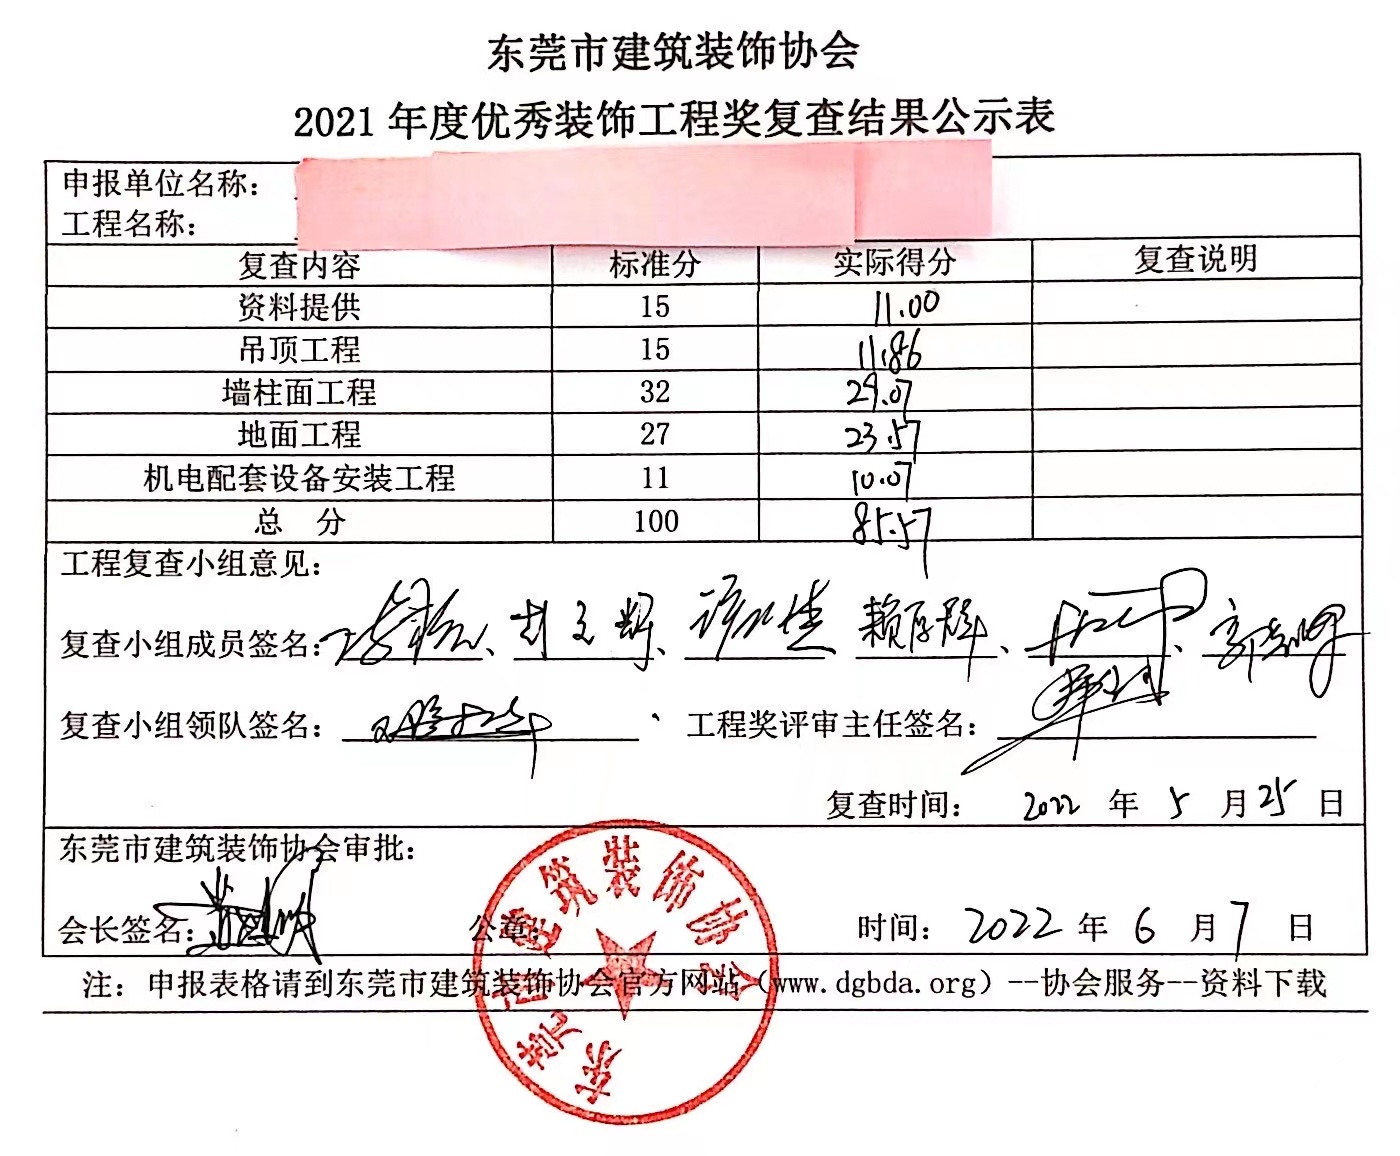 东莞市建筑装饰协会
2021 年度优秀装饰工程奖复查结果公示表
申报单位名称：
工程名称：
复查内容 标准分 实际得分 复查说明
资料提供 15 11.00
吊顶工程 15 11.86
墙柱面工程 32 29.07
地面工程 27 23.57
机电配套设备安装工程 11 10.07
总 分 100 85.57
工程复查小组意见：
复查小组成员签名： 、 、 、 、 、
复查小组领队签名： 工程奖评审主任签名：
复查时间： 2022 年 5 月 25 日
东莞市建筑装饰协会审批：
会长签名： 公章： 时间： 2022 年 6 月 7 日
东莞市建筑装饰协会
注：申报表格请到东莞市建筑装饰协会官方网站（www.dgbda.org）--协会服务--资料下载